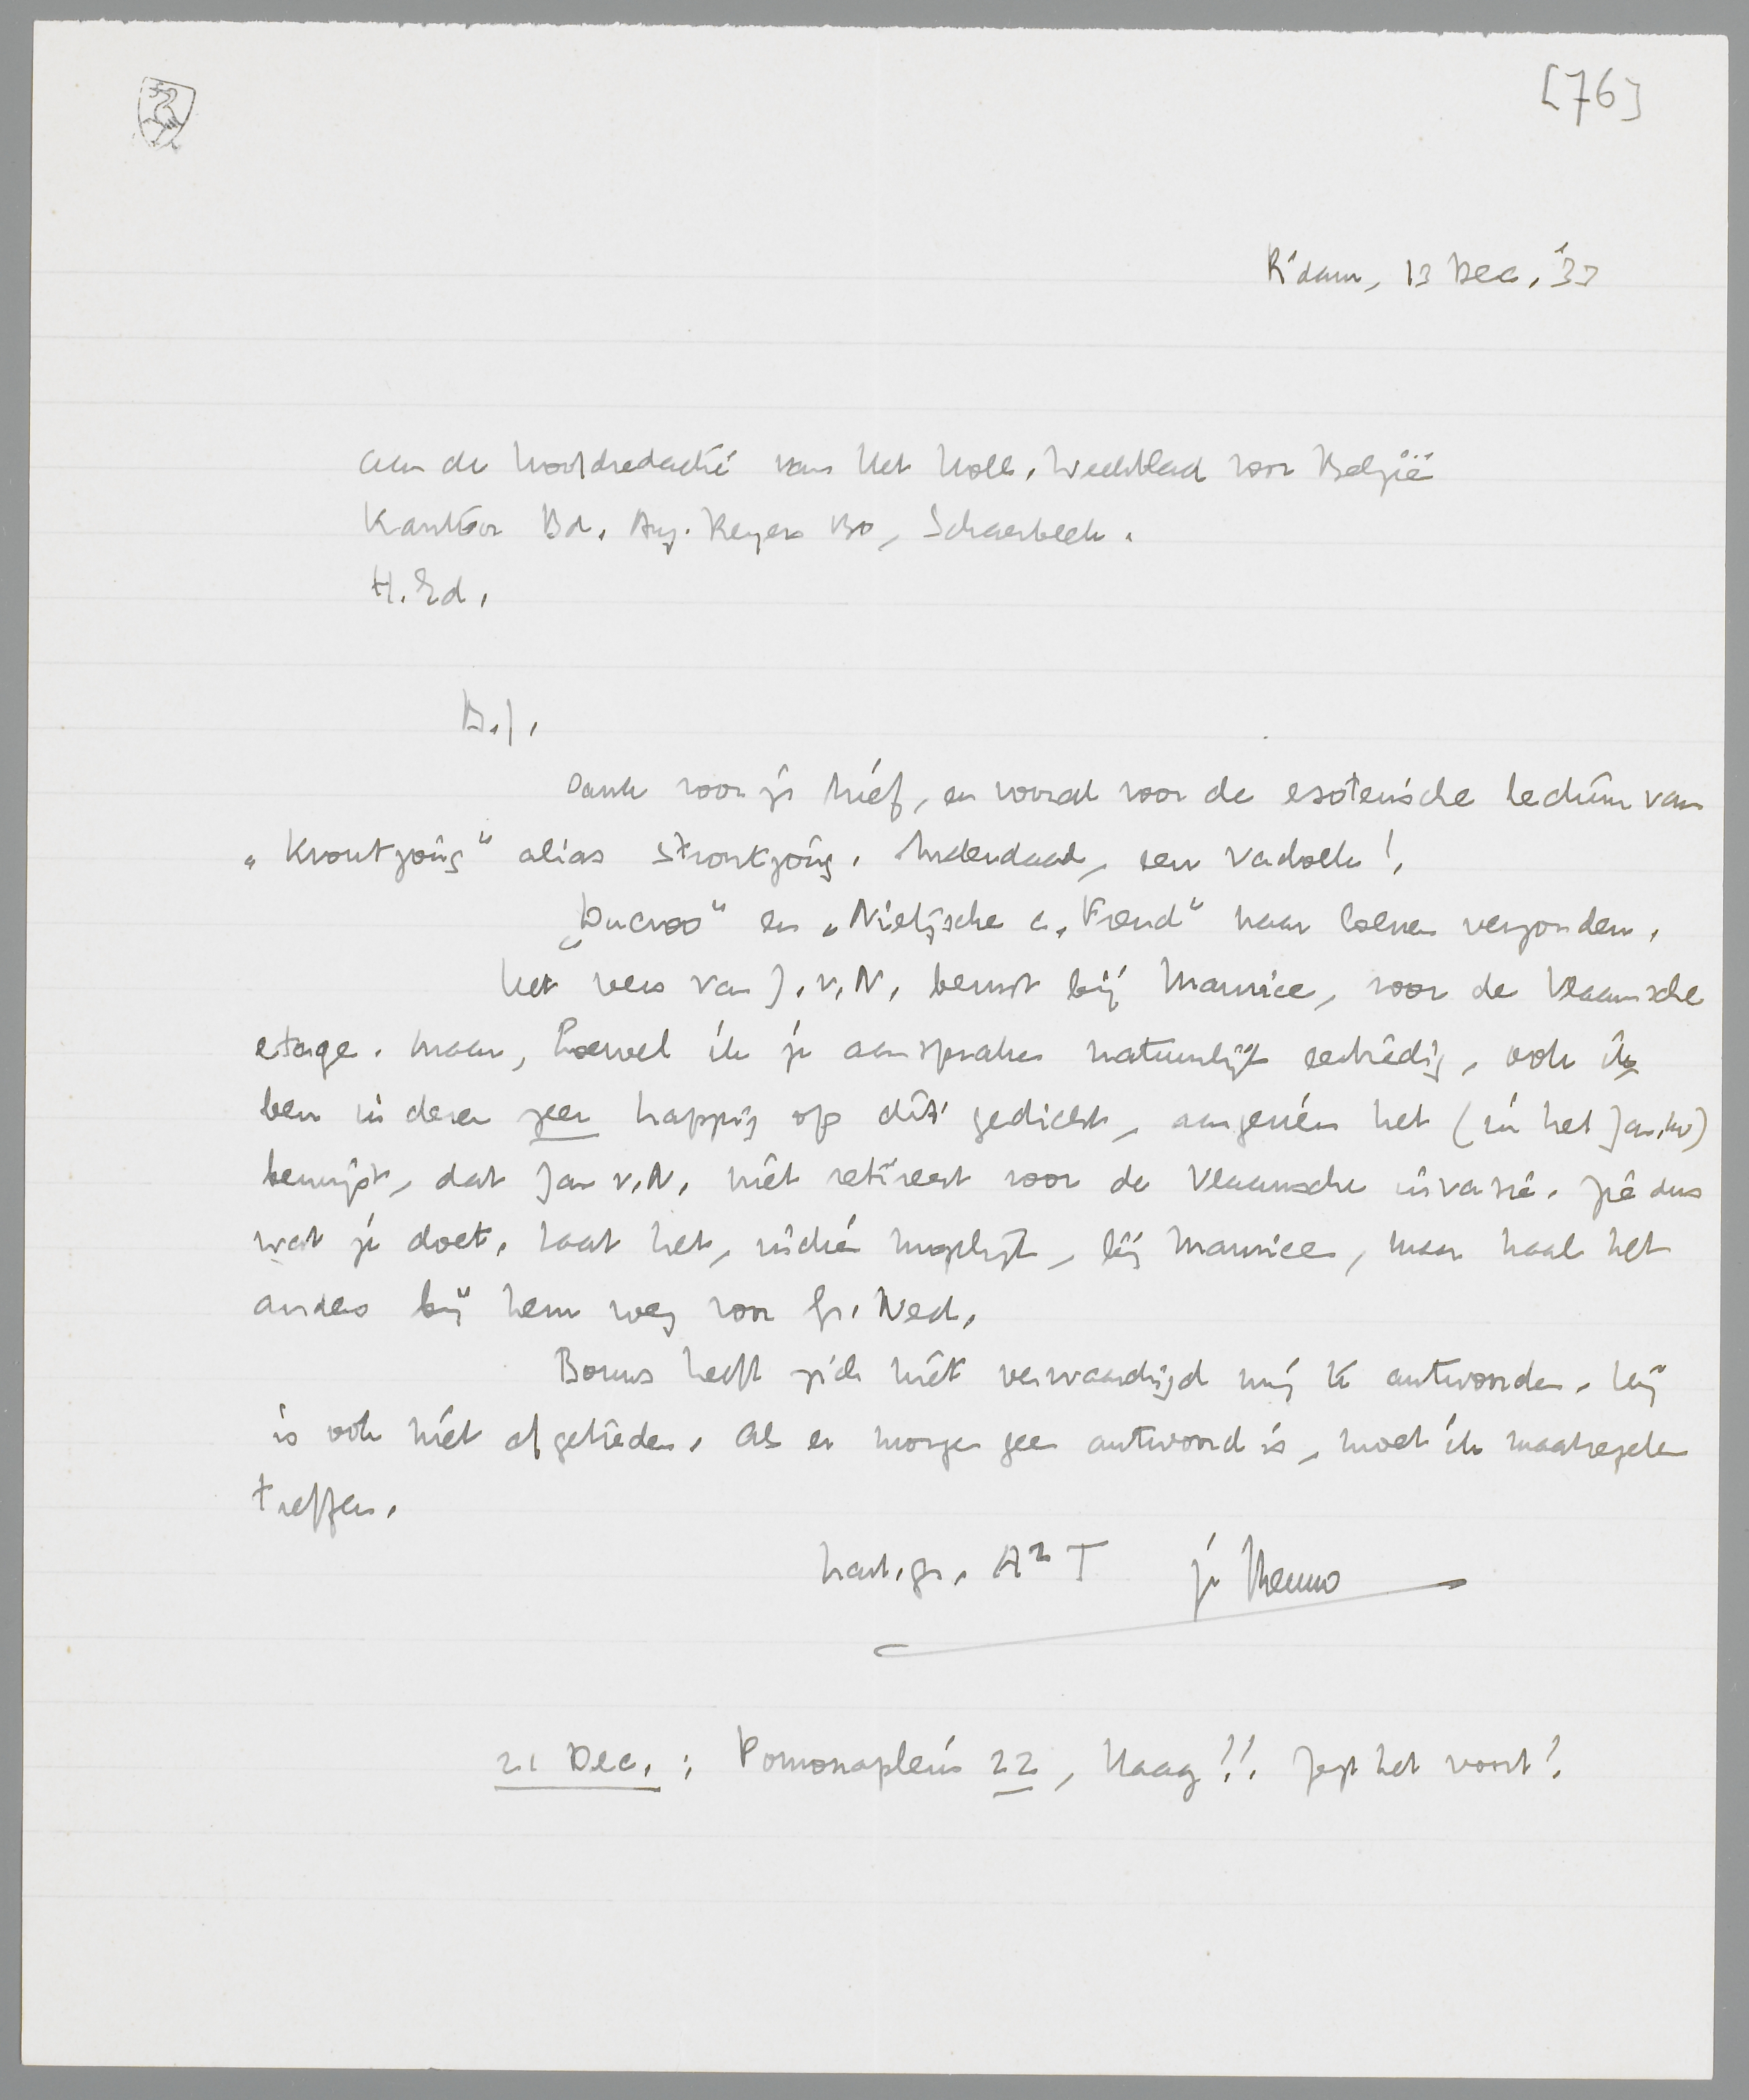 [76]
R'dam, 13 Dec. '33
Aan de hoofdredactie van het Holl. Weekblad voor België
Kantoor Bd. Aug. Reyers 130, Schaerbeek.
H. Ed.
B.J.
Dank voor je brief, en vooral voor de esoterische lectuur van
„Kroutzoug" alias Stronkzoug. Inderdaad, een !
„Ducroo" en „Nietzsche c. Freud" naar Coenen verzonden.
Het vers van J.v.N. berust bij Maurice, voor de Vlaamsche
etage. Maar, hoewel ik je aanspraken natuurlijk eerbiedig, ook ik
ben in dezen zeer happig op dit gedicht, aangezien het (in het Jan.nr)
bewijst, dat Jan v.N. niet retireert voor de Vlaamsche invasie. Zie dus
wat je doet. Laat het, indien mogelijk, bij Maurice, maar haal het
anders bij hem weg voor Gr. Ned.
Bouws heeft zich niet verwaardigd mij te antwoorden. Hij
is ook niet afgetreden. Als er morgen geen antwoord is, moet ik maatregelen
treffen.
hart. gr. A² T je Menno
21 Dec.: Pomonaplein 22, Haag!! Zegt het voort!